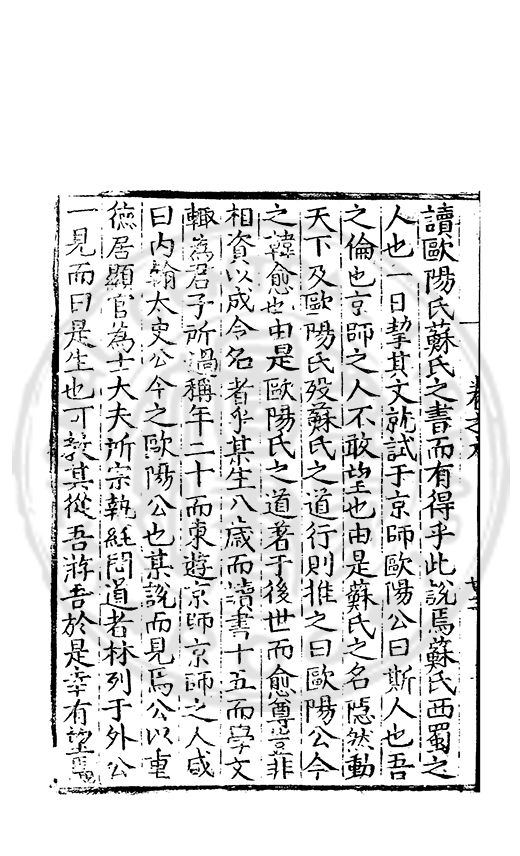 讀歐陽氏蘇氏之書而有得乎此說焉蘇氏西蜀之
人也一日挈其文就試于京師歐陽公曰斯人也吾
之倫也京師之人不敢望也由是蘇氏之名隠然動
天下及歐陽氏歿蘇氏之道行則推之曰歐陽公今
之韓愈也由是歐陽氏之道著于後世而愈尊豈非
相資以成令名者乎某生八歲而讀書十五而學文
輙為君子所過稱年二十而東遊京師京師之人咸
曰内翰太史公今之歐陽公也某說而見焉公以重
德居顯官為士大夫所宗執經問道者林列于外公
一見而曰是生也可教其從吾游吾於是幸有望焉
卷之九